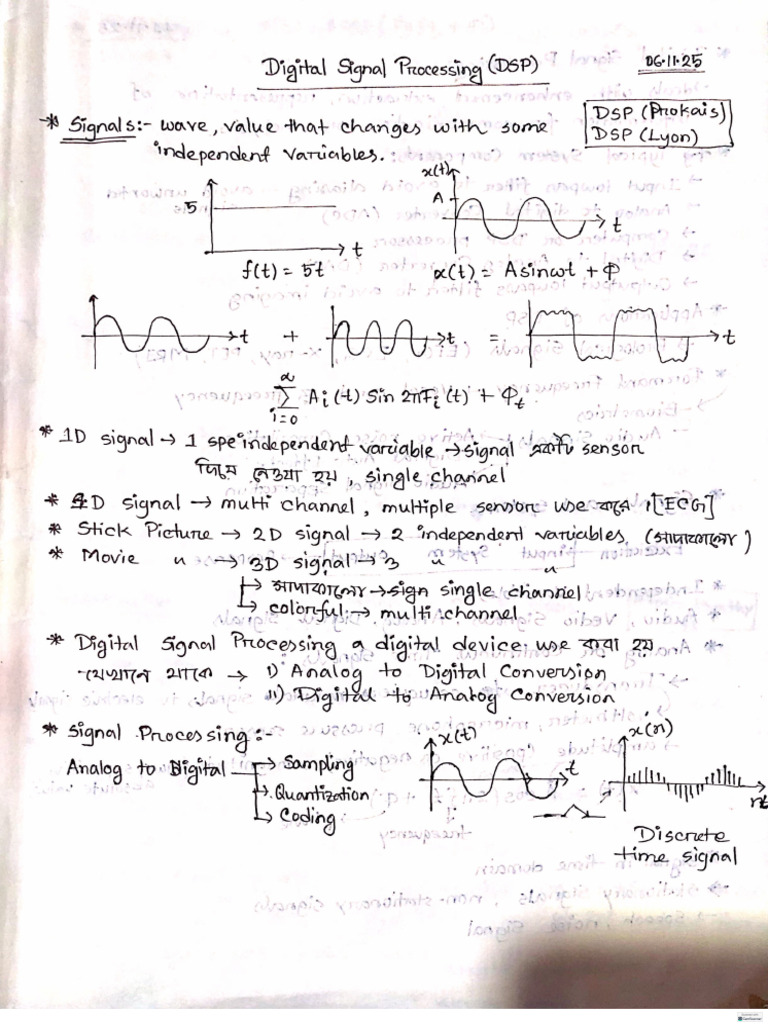 Digital Signal Processing (DSP)
06.11.25
* Signals:- wave, value that changes with some
independent variables.
DSP (Prokais)
DSP (Lyon)
5
t
f(t) = 5t
x(t)
A
t
x(t) = A sin ωt + Φ
t + t = t
∞
∑ Ai (t) Sin 2πFi (t) + Φt
i=0
* 1D signal → 1 independent variable → signal একটি sensor
দিয়ে নেওয়া হয়, single channel
* D signal → multi channel, multiple sensor use করে। [ECG]
* Stick Picture → 2D signal → 2 independent variables (সাদাকালো)
* Movie " → 3D signal → 3 " "
→ সাদাকালো → sign single channel
→ colorful → multi channel
* Digital Signal Processing a digital device use করা হয়
যেখানে থাকে → i) Analog to Digital Conversion
ii) Digital to Analog Conversion
* Signal Processing:-
Analog to Digital → Sampling
→ Quantization
→ Coding
x(t)
t
x(n)
nt
Discrete
time signal